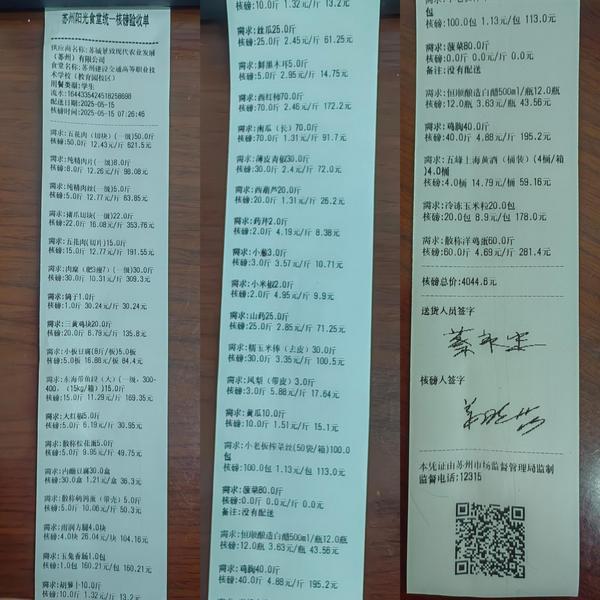 苏州阳光食堂统一核磅验收单
供应商名称:苏城景致现代农业发展
(苏州)有限公司
食堂名称:苏州建设交通高等职业技
术学校(教育园校区)
用餐类别:学生
流水:1644335424518258698
配送日期:2025-05-15
核磅时间:2025-05-15 07:26:46
需求:五花肉(切块)(一级)50.0斤
核磅:50.0斤 12.43元/斤 621.5元
需求:纯精肉片(一级)8.0斤
核磅:8.0斤 12.26元/斤 98.08元
需求:纯精肉丝(一级)5.0斤
核磅:5.0斤 12.77元/斤 63.85元
需求:猪爪切块(一级)22.0斤
核磅:22.0斤 16.08元/斤 353.76元
需求:五花肉(切片)15.0斤
核磅:15.0斤 12.77元/斤 191.55元
需求:肉糜(肥3瘦7)(一级)30.0斤
核磅:30.0斤 10.31元/斤 309.3元
需求:鸽子1.0斤
核磅:1.0斤 30.24元/斤 30.24元
需求:三黄鸡块20.0斤
核磅:20.0斤 6.79元/斤 135.8元
需求:小板豆腐(8斤/板)5.0板
核磅:5.0板 16.88元/板 84.4元
需求:东海带鱼段(大)(一级,300-
400,(15kg/箱))15.0斤
核磅:15.0斤 11.29元/斤 169.35元
需求:大红椒5.0斤
核磅:5.0斤 6.19元/斤 30.95元
需求:散称松花蛋5.0斤
核磅:5.0斤 9.95元/斤 49.75元
需求:内酯豆腐30.0盒
核磅:30.0盒 1.21元/盒 36.3元
需求:散称鹌鹑蛋(带壳)5.0斤
核磅:5.0斤 10.06元/斤 50.3元
需求:雨润方腿4.0块
核磅:4.0块 26.04元/块 104.16元
需求:玉兔香肠1.0包
核磅:1.0包 160.21元/包 160.21元
需求:胡萝卜10.0斤
核磅:10.0斤 1.32元/斤 13.2元
核磅:10.0斤 1.32元/斤 13.2元
需求:丝瓜25.0斤
核磅:25.0斤 2.45元/斤 61.25元
需求:鲜黑木耳5.0斤
核磅:5.0斤 2.95元/斤 14.75元
需求:西红柿70.0斤
核磅:70.0斤 2.46元/斤 172.2元
需求:南瓜(长)70.0斤
核磅:70.0斤 1.31元/斤 91.7元
需求:薄皮青椒30.0斤
核磅:30.0斤 2.4元/斤 72.0元
需求:西葫芦20.0斤
核磅:20.0斤 1.31元/斤 26.2元
需求:药芹2.0斤
核磅:2.0斤 4.19元/斤 8.38元
需求:小葱3.0斤
核磅:3.0斤 3.57元/斤 10.71元
需求:小米椒2.0斤
核磅:2.0斤 4.95元/斤 9.9元
需求:山药25.0斤
核磅:25.0斤 2.85元/斤 71.25元
需求:糯玉米棒(去皮)30.0斤
核磅:30.0斤 3.35元/斤 100.5元
需求:凤梨(带皮)3.0斤
核磅:3.0斤 5.88元/斤 17.64元
需求:黄瓜10.0斤
核磅:10.0斤 1.51元/斤 15.1元
需求:小老板榨菜丝(50袋/箱)100.0
包
核磅:100.0包 1.13元/包 113.0元
需求:菠菜80.0斤
核磅:0.0斤 0.0元/斤 0.0元
备注:没有配送
需求:恒顺酿造白醋500ml/瓶12.0瓶
核磅:12.0瓶 3.63元/瓶 43.56元
需求:鸡胸40.0斤
核磅:40.0斤 4.88元/斤 195.2元
包
核磅:100.0包 1.13元/包 113.0元
需求:菠菜80.0斤
核磅:0.0斤 0.0元/斤 0.0元
备注:没有配送
需求:恒顺酿造白醋500ml/瓶12.0瓶
核磅:12.0瓶 3.63元/瓶 43.56元
需求:鸡胸40.0斤
核磅:40.0斤 4.88元/斤 195.2元
需求:五峰上海黄酒(桶装)(4桶/箱
)4.0桶
核磅:4.0桶 14.79元/桶 59.16元
需求:冷冻玉米粒20.0包
核磅:20.0包 8.9元/包 178.0元
需求:散称洋鸡蛋60.0斤
核磅:60.0斤 4.69元/斤 281.4元
核磅总价:4044.6元
送货人员签字
核磅人签字
本凭证由苏州市场监督管理局监制
监督电话:12315